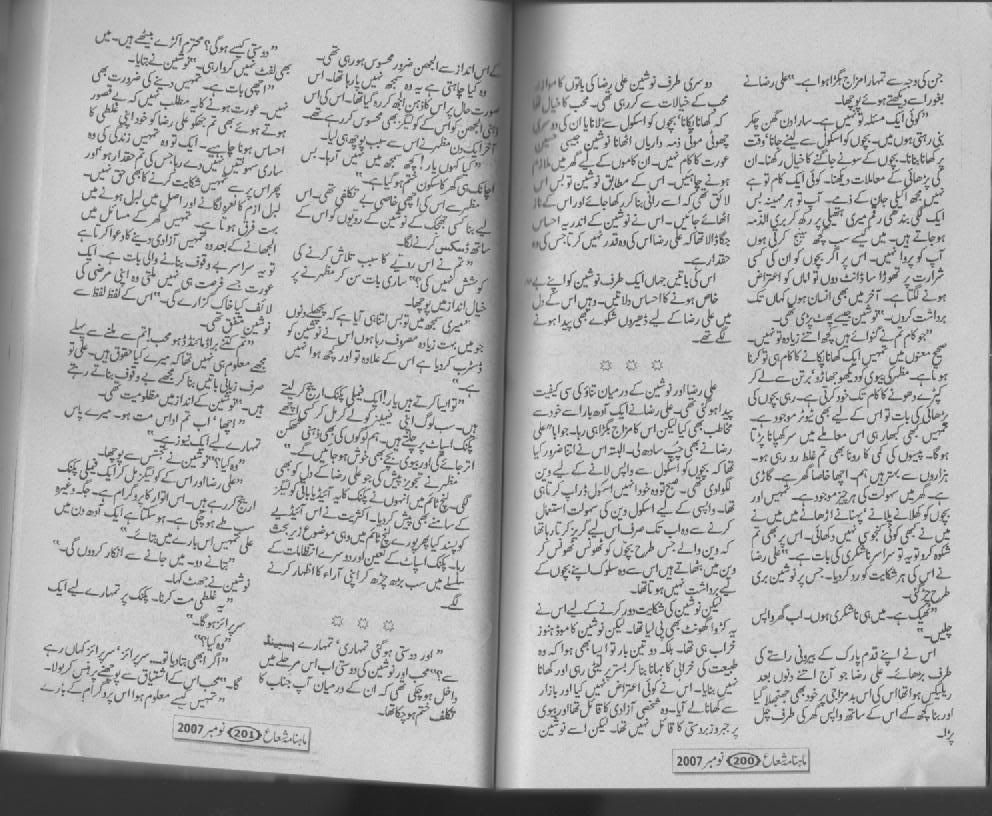 جن کی وجہ سے تمہارا مزاج بگڑا ہوا ہے۔“ علی رضا نے
بغور اسے دیکھتے ہوئے پوچھا۔
”کوئی ایک مسئلہ تو نہیں ہے۔ سارا دن گھن چکر
بنی رہتی ہوں میں۔ بچوں کو اسکول سے لینے جانا‘ وقت
پر کھانا بنانا۔ بچوں کے سونے جاگنے کا خیال رکھنا۔ ان
کی پڑھائی کے معاملات دیکھنا۔ کوئی ایک کام تو ہے
نہیں مجھ اکیلی جان کے ذمے۔ آپ تو ہر مہینہ بس
ایک لگی بندھی رقم میری ہتھیلی پر رکھ کر بری الذمہ
ہو جاتے ہیں۔ میں کیسے سب کچھ مینج کرتی ہوں
آپ کو پروا نہیں۔ اس پر اگر بچوں کو ان کی کسی
شرارت پر تھوڑا سا ڈانٹ دوں تو اماں کو اعتراض
ہونے لگتا ہے۔ آخر میں بھی انسان ہوں کہاں تک
برداشت کروں۔“ نوشین جیسے پھٹ پڑی تھی۔
”جو کام تم نے گنوائے ہیں کچھ اتنے زیادہ تو نہیں۔
صحیح معنوں میں تمہیں ایک کھانا پکانے کا کام ہی تو کرنا
ہوتا ہے۔ مظہر کی بیوی کو دیکھو جھاڑو‘ برتن سے لے کر
کپڑے دھونے کا کام تک خود کرتی ہے۔ رہی بچوں کی
پڑھائی کی بات تو اس کے لیے بھی ٹیوٹر موجود ہے۔
تمہیں کبھی کبھار ہی اس معاملے میں سر کھپانا پڑتا
ہو گا۔ پیسوں کی کمی کا رونا بھی تم غلط رو رہی ہو۔
ہزاروں سے بہتر ہیں ہم۔ اچھا خاصا گھر ہے۔ گاڑی
ہے۔ گھر میں سہولت کی ہر چیز موجود ہے۔ تمہیں اور
بچوں کو کھلانے پلانے‘ پہنانے اڑھانے میں میں نے
میں نے کبھی کوئی کنجوسی نہیں دکھائی۔ اس پر بھی تم
شکوہ کرو تو یہ تو سراسر ناشکری کی بات ہے۔“ علی رضا
نے اس کی ہر شکایت کو رد کر دیا۔ جس پر نوشین بری
طرح چڑ گئی۔
”ٹھیک ہے۔ میں ہی ناشکری ہوں۔ اب گھر واپس
چلیں۔“
اس نے اپنے قدم پارک کے بیرونی راستے کی
طرف بڑھائے۔ علی رضا جو آج اتنے دنوں بعد
ریلیکس ہوا تھا اس کی اس بدمزاجی پر خود بھی جھنجھلا گیا
اور بنا کچھ کہے اس کے ساتھ واپس گھر کی طرف چل
پڑا۔
دوسری طرف نوشین علی رضا کی باتوں کا موازنہ
محب کے خیالات سے کر رہی تھی۔ محب کا خیال تھا
کہ کھانا پکانا‘ بچوں کو اسکول سے لانا یا ان کی دوسری
چھوٹی موٹی ذمہ داریاں اٹھانا نوشین جیسی حسین
عورت کا کام نہیں۔ ان کاموں کے لیے گھر میں ملازم
ہونے چاہئیں۔ اس کے مطابق نوشین تو بس اس
لائق تھی کہ اسے رانی بنا کر رکھا جائے اور اس کے ناز
اٹھائے جائیں۔ اس نے نوشین کے اندر یہ احساس
جگا ڈالا تھا کہ علی رضا اس کی وہ قدر نہیں کرتا جس کی وہ
حقدار ہے۔
اس کی باتیں جہاں ایک طرف نوشین کو اپنے بے
خاص ہونے کا احساس دلاتیں۔ وہیں اس کے دل
میں علی رضا کے لیے ڈھیروں شکوے بھی پیدا ہونے
لگے تھے۔
علی رضا اور نوشین کے درمیان تناؤ کی سی کیفیت
پیدا ہو گئی تھی۔ علی رضا نے ایک آدھ بار اسے خود سے
مخاطب بھی کیا لیکن اس کا مزاج بگڑا ہی رہا۔ جواباً علی
رضا نے بھی چپ سادھ لی۔ البتہ اس نے اتنا ضرور کیا
تھا کہ بچوں کو اسکول سے واپس لانے کے لیے وین
لگوا دی تھی۔ صبح تو وہ خود انہیں اسکول ڈراپ کرتا ہی
تھا۔ واپسی کے لیے اسکول وین کی سہولت استعمال
کرنے سے وہ اب تک صرف اس لیے گریز کرتا رہا تھا
کہ وین والے جس طرح بچوں کو ٹھونس ٹھونس کر
وین میں بٹھاتے ہیں اس سے وہ سلوک اپنے بچوں کے
لیے برداشت نہیں ہوتا تھا۔
لیکن نوشین کی شکایت دور کرنے کے لیے اس نے
یہ کڑوا گھونٹ بھی پی لیا تھا۔ لیکن نوشین کا موڈ ہنوز
خراب ہی تھا۔ بلکہ دو تین بار تو ایسا بھی ہوا کہ وہ
طبیعت کی خرابی کا بہانا بنا کر بستر پر لیٹی رہی اور کھانا
نہیں بنایا۔ اس نے کوئی اعتراض نہیں کیا اور بازار
سے کھانا لے آیا۔ وہ شخصی آزادی کا قائل تھا اور بیوی
پر جبر و زبردستی کا قائل نہیں تھا۔ لیکن اسے نوشین
ماہنامہ شعاع 200 نومبر 2007
کے اس انداز سے الجھن ضرور محسوس ہو رہی تھی۔
وہ کیا چاہتی ہے یہ وہ سمجھ نہیں پا رہا تھا۔ اس
صورت حال پر اس کا ذہن الجھ کر رہ گیا تھا۔ اس کی اس
ذہنی الجھن کو اس کے کولیگز بھی محسوس کر رہے تھے۔
آخر ایک دن مظہر نے اس سے سبب پوچھ ہی لیا۔
”کیا کہوں یار! کچھ سمجھ میں نہیں آ رہا۔ بس
اچانک ہی گھر کا سکون ختم ہو گیا ہے۔“
مظہر سے اس کی اچھی خاصی بے تکلفی تھی۔ اس
لیے بنا کسی جھجک کے نوشین کے رویوں کو اس کے
ساتھ ڈسکس کرنے لگا۔
”تم نے اس رویے کا سبب تلاش کرنے کی
کوشش نہیں کی؟“ ساری بات سن کر مظہر نے پر
خیال انداز میں پوچھا۔
”میری سمجھ میں تو بس اتنا ہی آیا ہے کہ پچھلے دنوں
جو میں بہت زیادہ مصروف رہا ہوں اس نے نوشین کو
ڈسٹرب کر دیا ہے اس کے علاوہ تو اور کچھ ہوا نہیں
ہے۔“
”تو ایسا کرتے ہیں یار! ایک فیملی پکنک ارینج کر لیتے
ہیں۔ سب لوگ اپنی فیملیز کو لے کر مل کر کسی اچھے
پکنک اسپاٹ پر چلتے ہیں۔ ہم لوگوں کی بھی ذہنی تھکن
اتر جائے گی اور بیوی بچے بھی خوش ہو جائیں گے۔“
مظہر نے تجویز پیش کی جو علی رضا کے دل کو بھی
لگی۔ لنچ ٹائم میں انہوں نے پکنک کا یہ آئیڈیا باقی کولیگز
کے سامنے بھی پیش کر دیا۔ اکثریت نے اس آئیڈیے
کو پسند کیا پھر پورے لنچ ٹائم میں وہی موضوع زیر بحث
رہا۔ پکنک اسپاٹ کے تعین اور دوسرے انتظامات کے
سلسلے میں سب بڑھ چڑھ کر اپنی آراء کا اظہار کرنے
لگے۔
”اور دوستی ہو گئی تمہاری‘ تمہارے ہسبینڈ
سے؟“ محب اور نوشین کی دوستی اب اس مرحلے میں
داخل ہو چکی تھی کہ ان کے درمیان آپ جناب کا
تکلف ختم ہو چکا تھا۔
”دوستی کیسے ہو گی؟ محترم اکڑے بیٹھے ہیں۔ میں
بھی لفٹ نہیں کروا رہی۔“ نوشین نے بتایا۔
”اچھی بات ہے۔ تمہیں دبنے کی ضرورت بھی
نہیں۔ عورت ہونے کا یہ مطلب نہیں کہ بے قصور
ہوتے ہوئے بھی تم جھکو علی رضا کو خود اپنی غلطی کا
احساس ہونا چاہیے۔ ایک تو وہ تمہیں زندگی کی وہ
ساری سہولتیں نہیں دے رہا جس کی تم حقدار ہو اور
پھر اس پر سے تمہیں شکایت کرنے کا بھی حق نہیں۔
لبرل ازم کا نعرہ لگانے اور اصل میں لبرل ہونے میں
بہت فرق ہوتا ہے۔ تمہیں گھر کے مسائل میں
الجھانے کے بعد وہ تمہیں آزادی دینے کا دعوا کرتا ہے
تو یہ سراسر بے وقوف بنانے والی بات ہے۔ ایک
عورت جسے فرصت ہی نہیں ملتی وہ اپنی مرضی کی
لائف کیا خاک گزارے گی۔“ اس کے لفظ لفظ سے
نوشین متفق تھی۔
”تم کتنے براڈ مائنڈڈ ہو محب! تم سے ملنے سے پہلے
مجھے معلوم ہی نہیں تھا کہ میرے کیا حقوق ہیں۔ علی تو
صرف زبانی باتیں بنا کر مجھے بے وقوف بناتے رہتے
ہیں۔“ نوشین کے انداز میں مظلومیت تھی۔
”اچھا‘ اب تم اداس مت ہو۔ میرے پاس
تمہارے لیے ایک نیوز ہے۔“
”وہ کیا؟“ نوشین نے تجسس سے پوچھا۔
”علی رضا اور اس کے کولیگز مل کر ایک فیملی پکنک
ارینج کر رہے ہیں۔ اس اتوار کا پروگرام ہے۔ جگہ وغیرہ
سب طے ہو چکی ہے۔ ہو سکتا ہے ایک آدھ دن میں
علی تمہیں اس بارے میں بتائے۔“
”بتانے دو۔ میں جانے سے انکار کر دوں گی۔“
نوشین نے جھٹ کہا۔
”یہ غلطی مت کرنا۔ پکنک پر تمہارے لیے ایک
سرپرائز ہو گا۔“
”وہ کیا؟“
”اگر ابھی بتا دیا تو... سرپرائز‘ سرپرائز کہاں رہے
گا۔“ محب اس کے اشتیاق سے پوچھنے پر ہنس کر بولا۔
”تمہیں کیسے معلوم ہوا اس پروگرام کے بارے
ماہنامہ شعاع 201 نومبر 2007